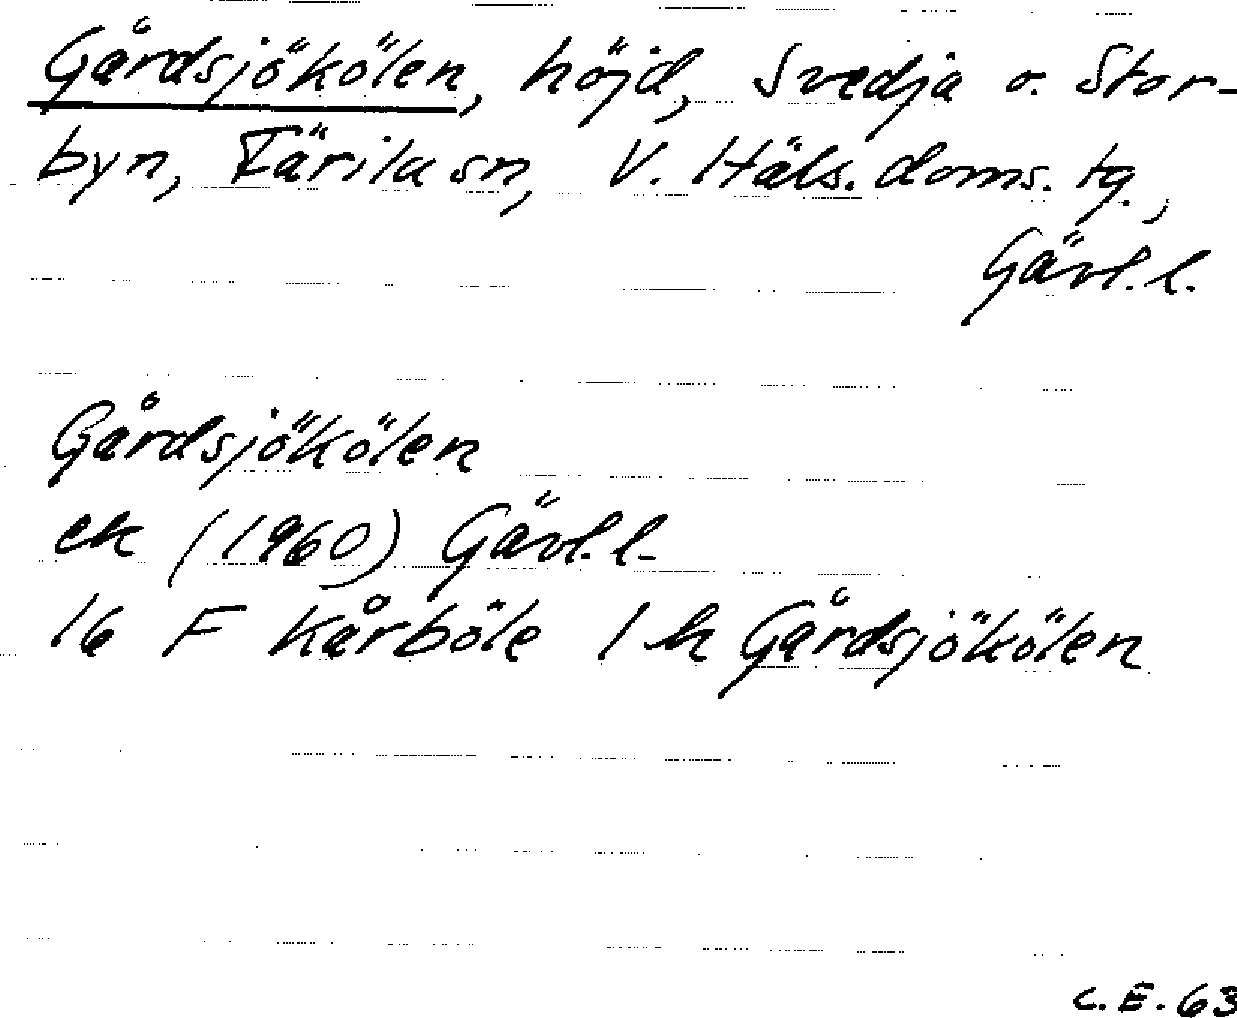 Gårdsjökölen, höjd, Svedja o. Stor-
byn, Färila sn, V. Häls. doms. tg.,
Gävl. l.
Gårdsjökölen
ek (1960) Gävl. l.
16 F Kårböle 1 h Gårdsjökölen
C.E. 63